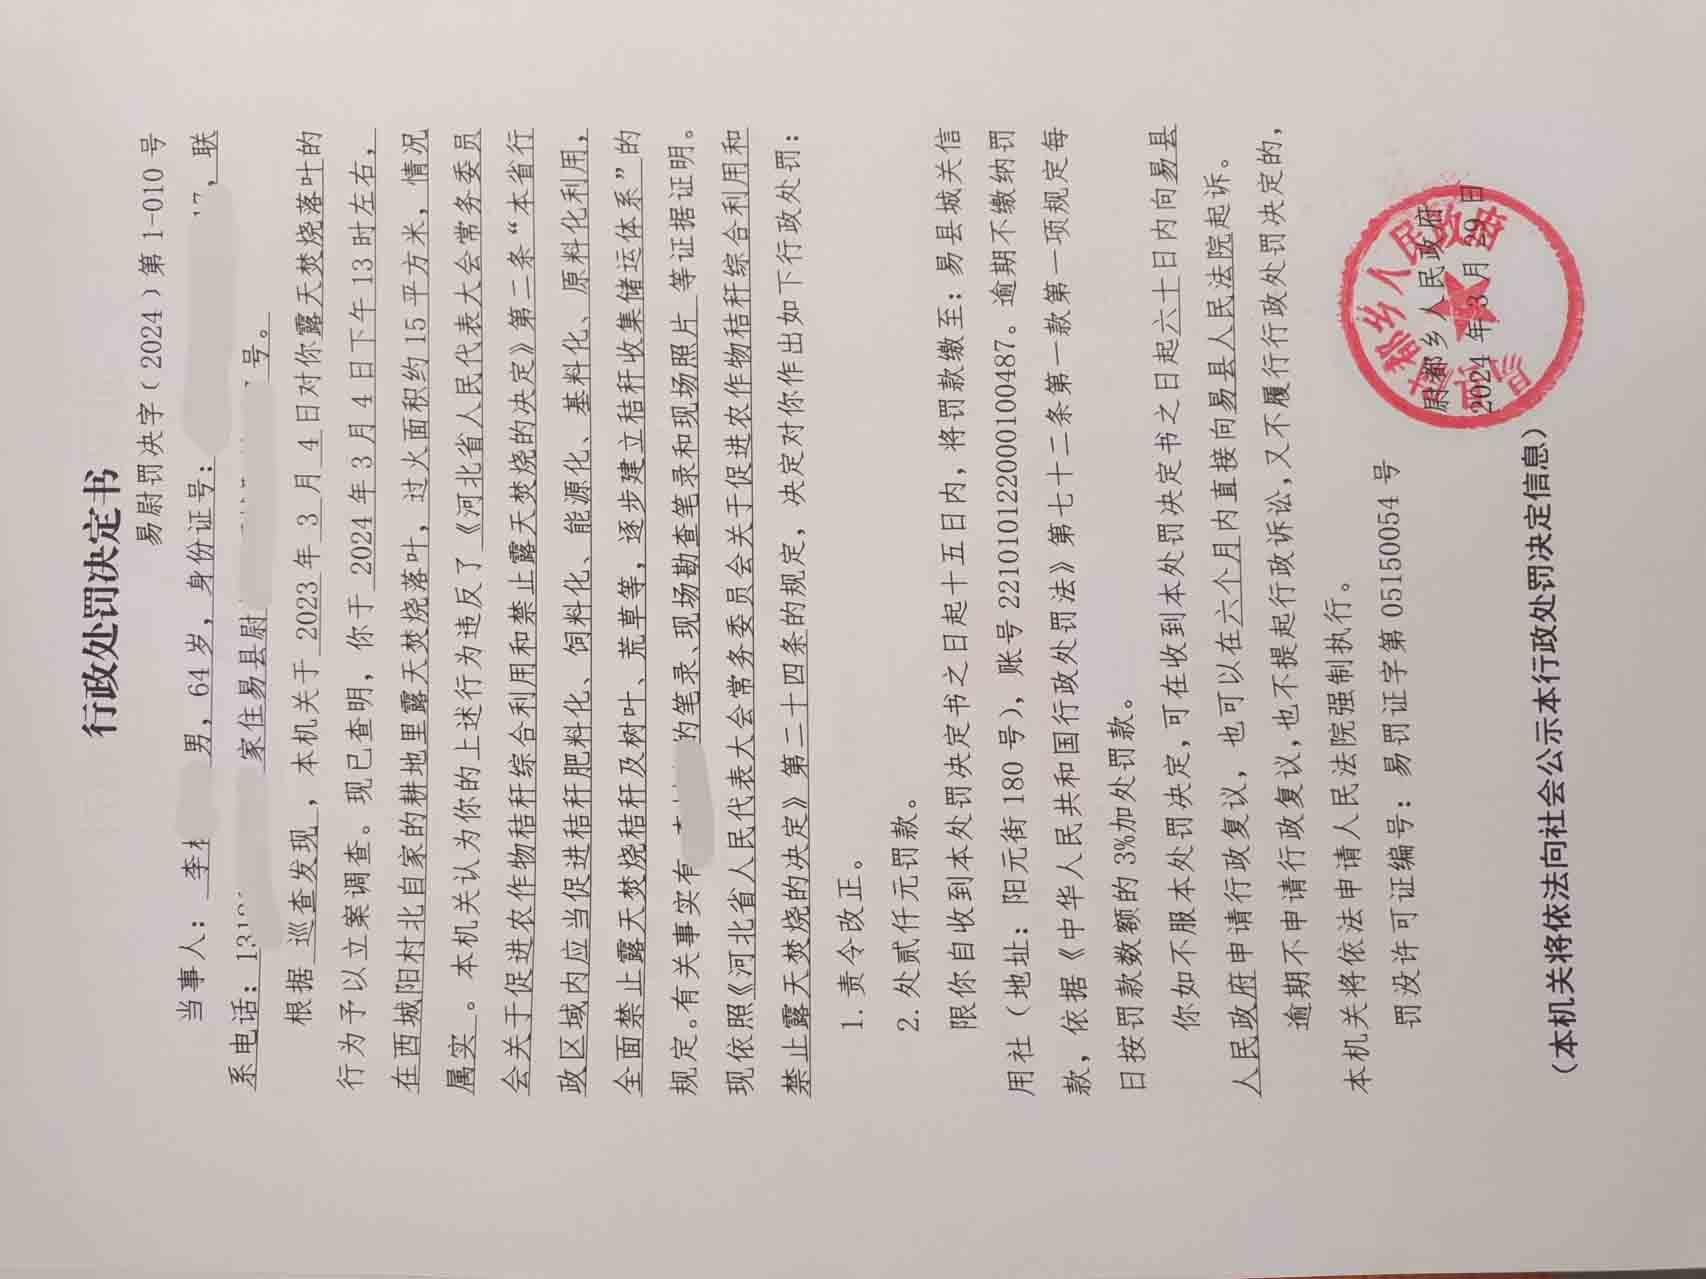 行政处罚决定书
易尉罚决字（2024）第1-010号
当事人：李 男，64岁，身份证号： 17，联
系电话：131 家住易县尉 号。
根据 巡查发现，本机关于 2023 年 3 月 4 日对你露天焚烧落叶的
行为予以立案调查。现已查明，你于 2024年3月4日下午13时左右，
在西城阳村北自家的耕地里露天焚烧落叶，过火面积约15平方米，情况
属实 。本机关认为你的上述行为违反了《河北省人民代表大会常务委员
会关于促进农作物秸秆综合利用和禁止露天焚烧的决定》第二条“本省行
政区域内应当促进秸秆肥料化、饲料化、能源化、基料化、原料化利用，
全面禁止露天焚烧秸秆及树叶、荒草等，逐步建立秸秆收集储运体系”的
规定。有关事实有 的笔录、现场勘查笔录和现场照片 等证据证明。
现依照《河北省人民代表大会常务委员会关于促进农作物秸秆综合利用和
禁止露天焚烧的决定》第二十四条的规定，决定对你作出如下行政处罚：
1. 责令改正。
2. 处贰仟元罚款。
限你自收到本处罚决定书之日起十五日内，将罚款缴至：易县城关信
用社（地址：阳元街180号），账号2210101220001004​87。逾期不缴纳罚
款，依据《中华人民共和国行政处罚法》第七十二条第一款第一项规定每
日按罚款数额的3%加处罚款。
你如不服本处罚决定，可在收到本处罚决定书之日起六十日内向易县
人民政府申请行政复议，也可以在六个月内直接向易县人民法院起诉。
逾期不申请行政复议，也不提起行政诉讼，又不履行行政处罚决定的，
本机关将依法申请人民法院强制执行。
罚没许可证编号：易罚证字第05150054号
尉都乡人民政府
2024年3月29日
易县尉都乡人民政府
（本机关将依法向社会公示本行政处罚决定信息）